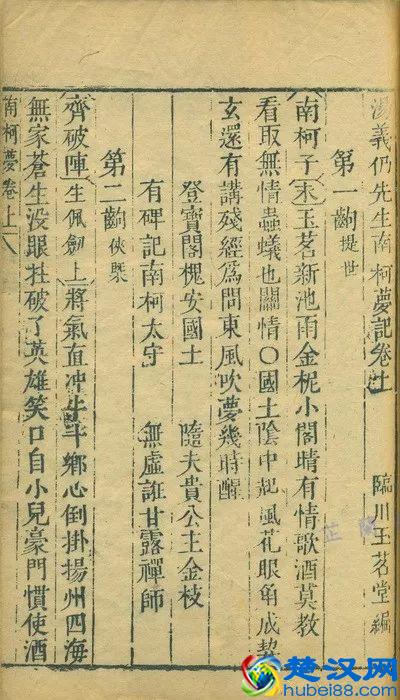 湯義仍先生南柯夢記卷上
臨川玉茗堂編
第一齣 提世
南柯子 末 玉茗新池雨金柅小閣晴有情歌酒莫教
看取無情蟲蟻也關情〇國土陰中起風花眼角成契
玄還有講殘經爲問東風吹夢幾時醒
登寶閣槐安國土 隨夫貴公主金枝
有碑記南柯太守 無虛誑甘露禪師
第二齣 俠槩
齊破陣 生佩劍上 將氣直冲牛斗鄉心倒掛揚州四海
無家蒼生没眼拄破了英雄笑口自小兒豪門慣使酒
南柯夢卷上 八
楚汉网
hubei88.com